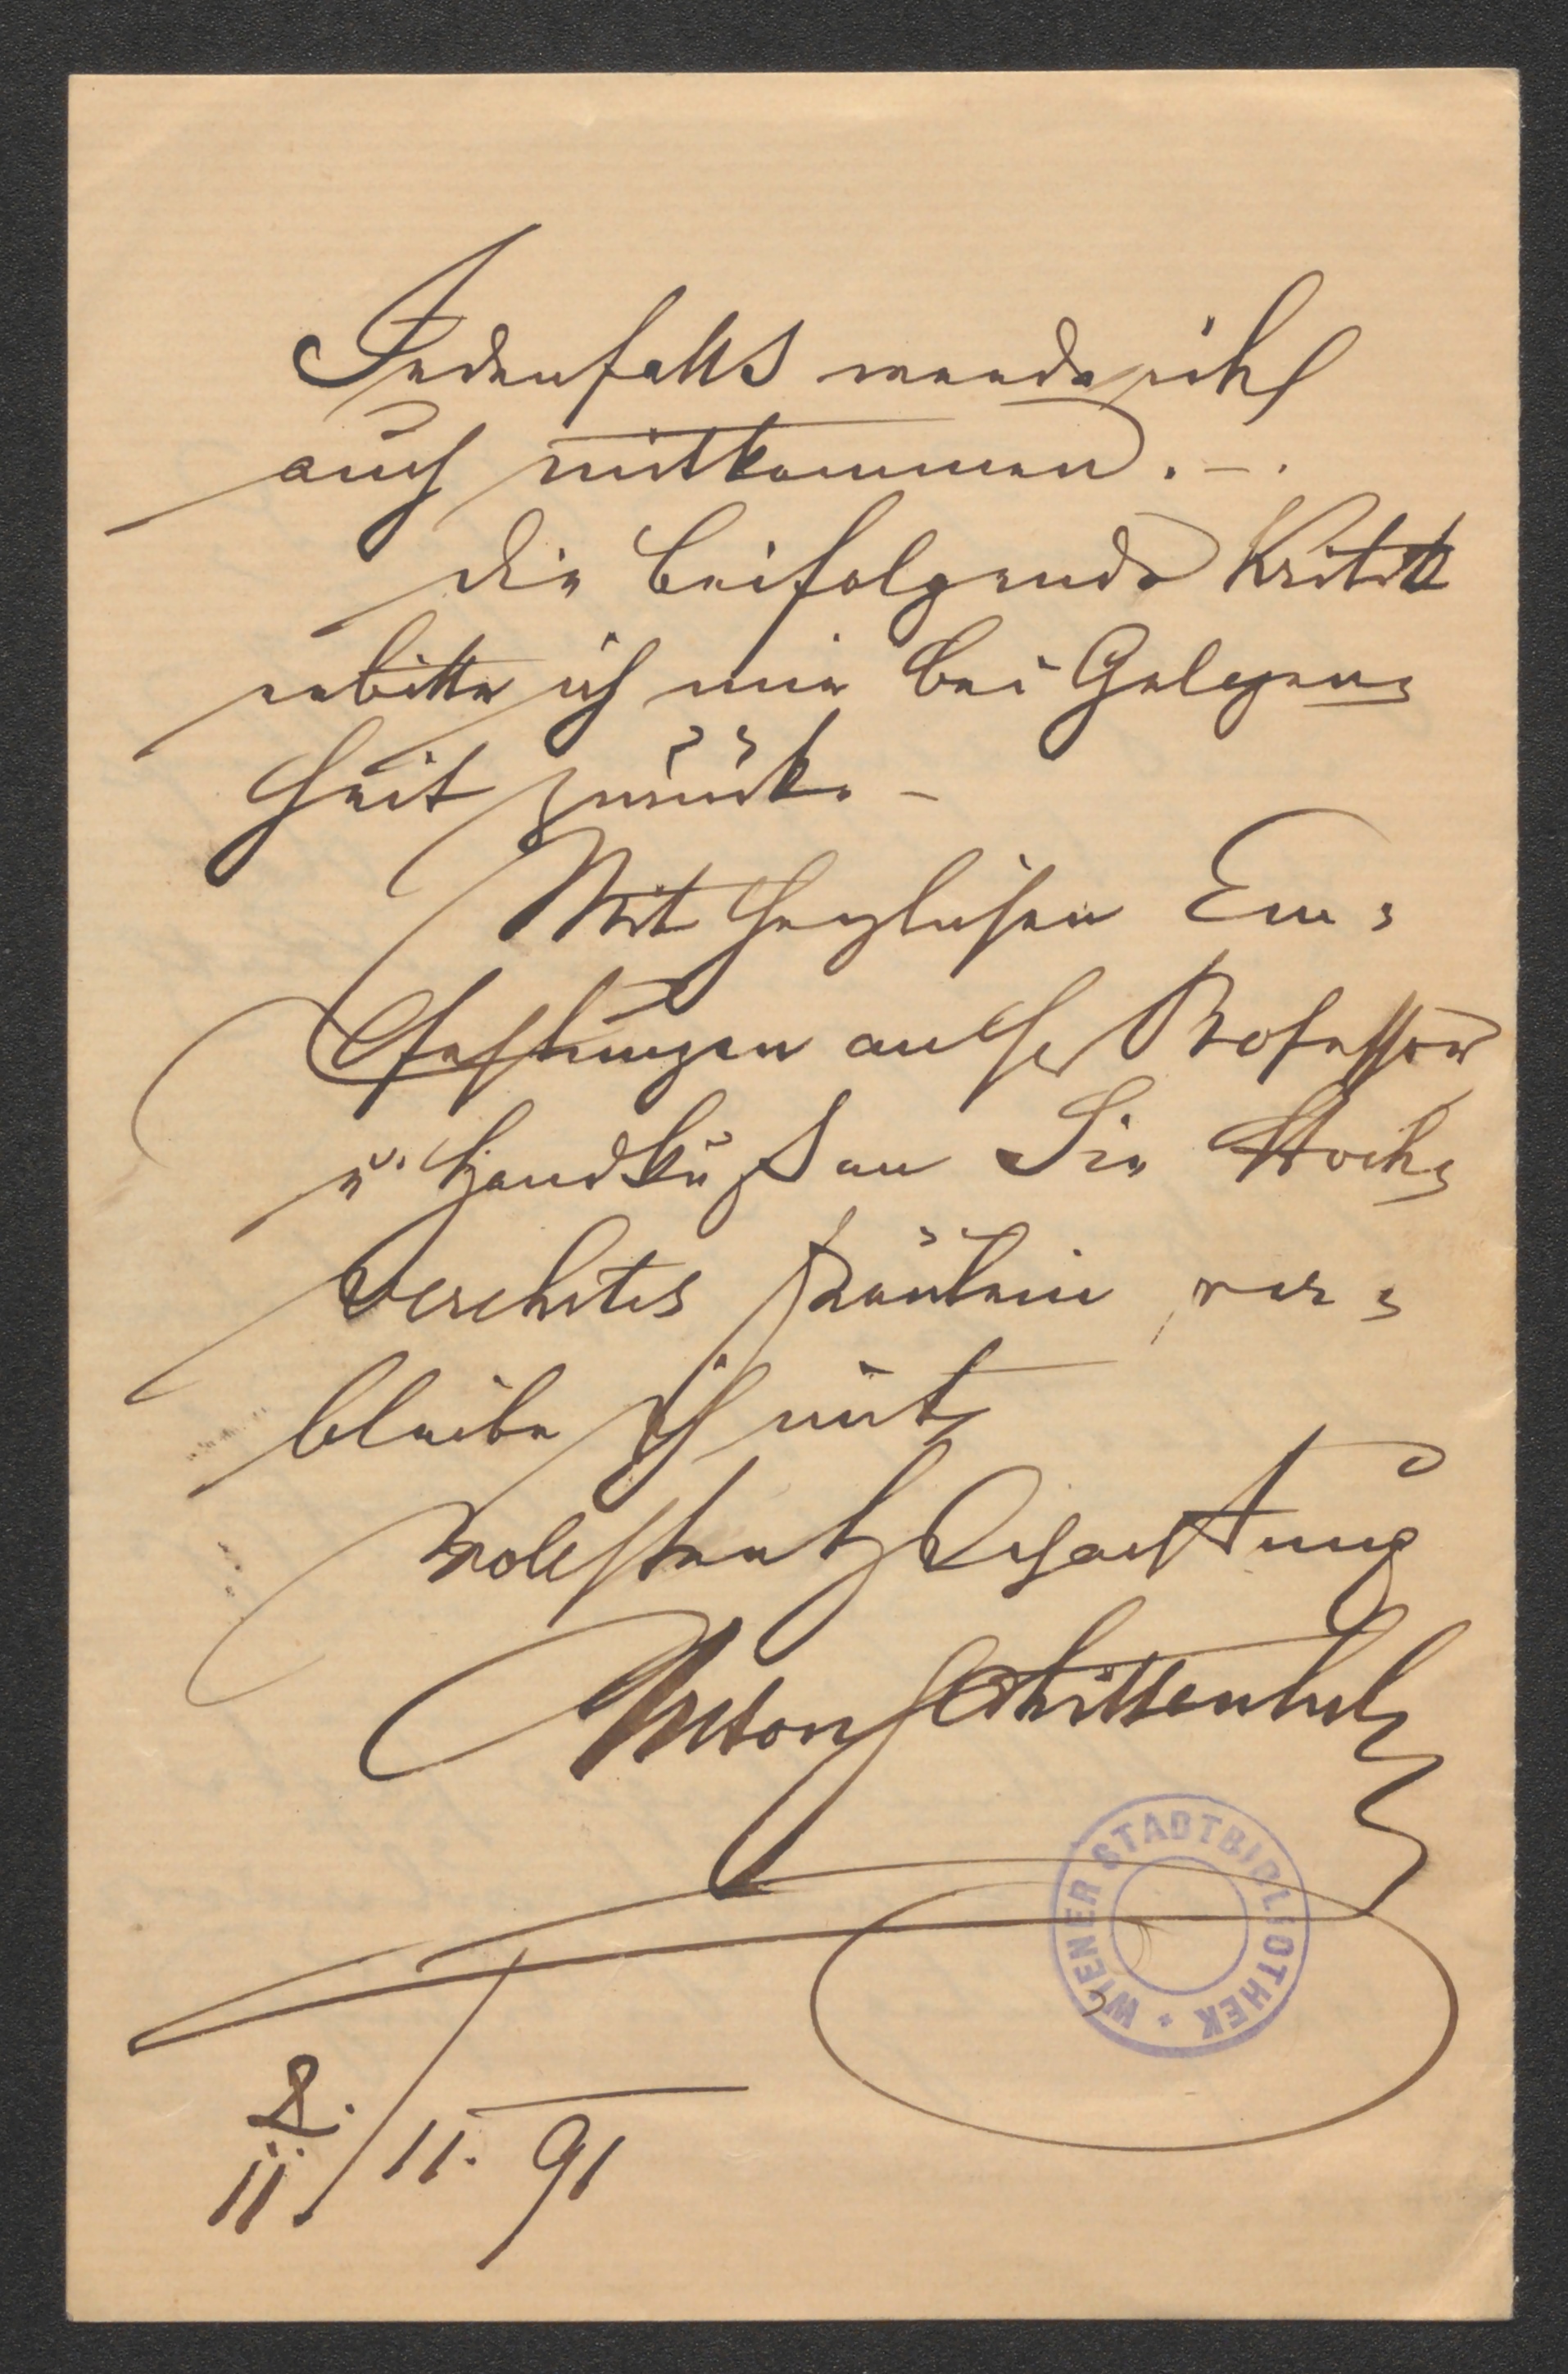 Jedenfalls werde ich
auch mitkommen. –.
Die beifolgende Kritik
erbitte ich mir bei Gelegen=
heit zurück. –
Mit herzlichen Em=
pfehlungen an H Professor
u. Handkuß an Sie Hoch=
verehrtes Fräulein, ver=
bleibe ich mit
vollster Hochachtung
Anton Schittenhelm
8./11. 11. 91
WIENER STADTBIBLIOTHEK *